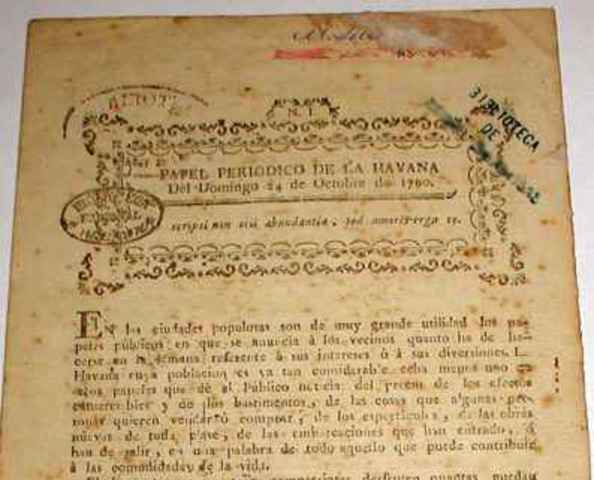 BIBLIOTECA
DE
N. I
PAPEL PERIODICO DE LA HAVANA
Del Domingo 24 de Octubre de 1790.
scripsi non otii abundantia, sed amoris erga te.
EN las ciudades populosas son de muy grande utilidad los pa-
peles públicos en que se anuncia á los vecinos quanto ha de ha-
cerse en la semana referente á sus intereses ó á sus diversiones. L
Havana cuya poblacion es ya tan considerable echa menos uno de
estos papeles que dé al Público noticia del precio de los efectos
comerciables y de los bastimentos, de las cosas que algunas per-
sonas quieren vender ó comprar, de los espectáculos, de las obras
nuevas de toda clase, de las embarcaciones que han entrado, ó
han de salir, en una palabra de todo aquello que puede contribuir
á las comodidades de la vida.